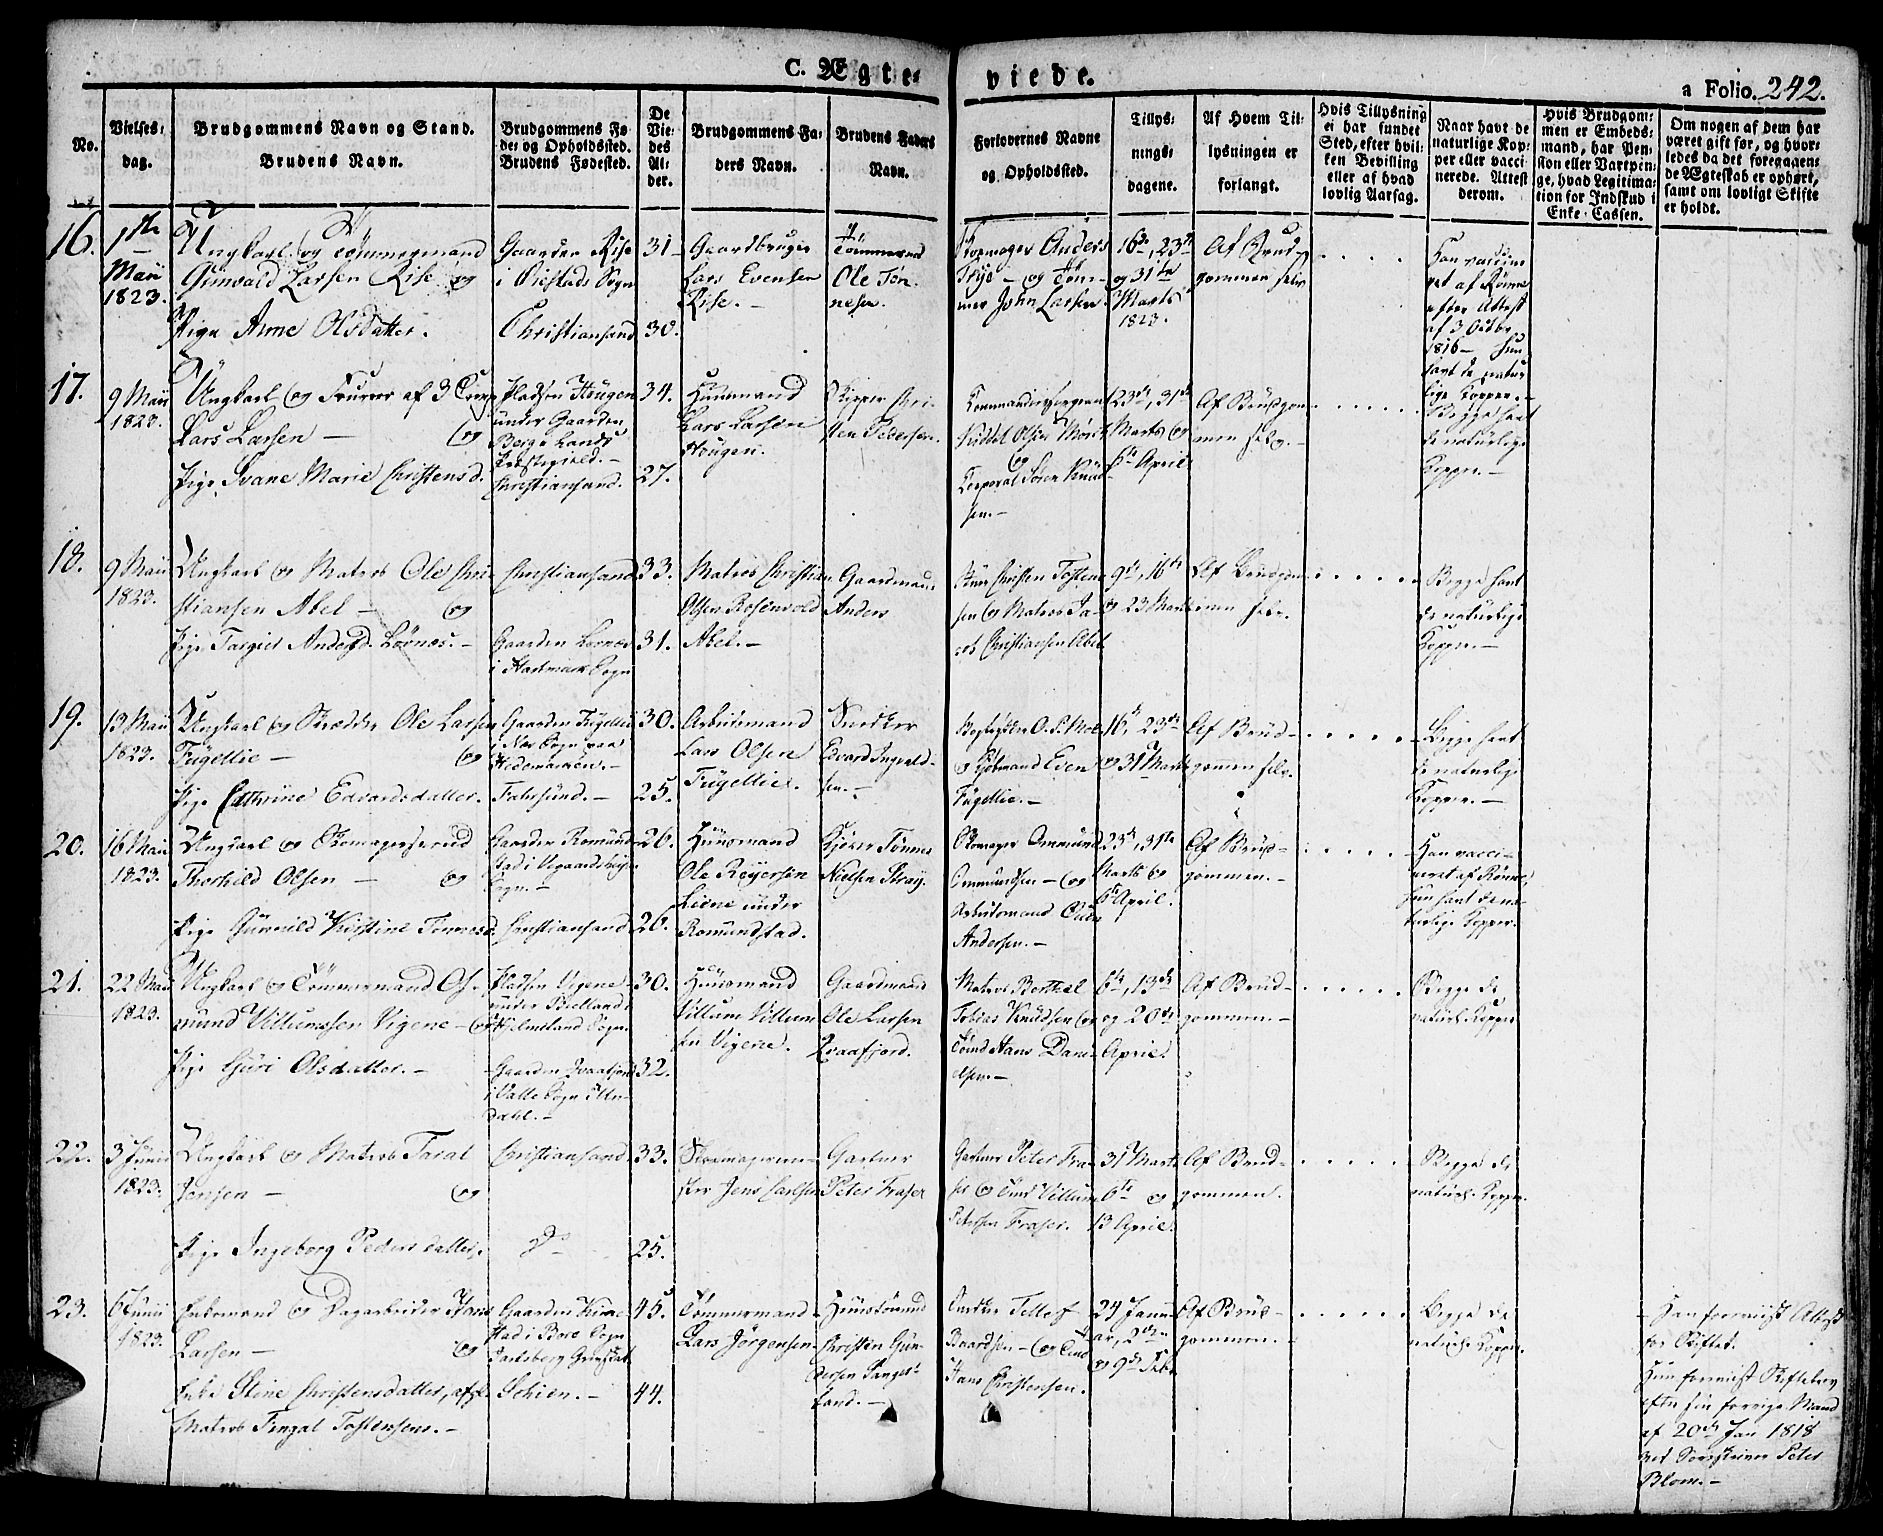 C. Ægte-
viede.
a Folio. 242.
No.
Vielses-
dag.
Brudgommens Navn og Stand.
Brudens Navn.
Brudgommens Fø-
de- og Opholdssted.
Brudens Fødested.
De
Vie-
des
Al-
der.
Brudgommens Fa-
ders Navn.
Brudens Faders
Navn.
Forlovernes Navne
og Opholdssted.
Tillys-
nings-
dagene.
Af Hvem Til-
lysningen er
forlangt.
Hvis Tillysning
ei har fundet
Sted, efter hvil-
ken Bevilling
eller af hvad
lovlig Aarsag.
Naar havt de
naturlige Kop-
per eller vacci-
nerede. Attest
derom.
Hvis Brudgom-
men er Embeds-
mand, har Pen-
sion eller Vartpen-
ge, hvad Legitima-
tion for Indskud i
Enke-Cassen.
Om nogen af dem har
været gift før, og hvor-
ledes da det foregaaen-
de Ægteskab er ophørt,
samt om lovligt Skifte
er holdt.
16.
1ste
Maii
1823.
Ungkarl og Tømmermand
Gunvald Larsen Rise og
Pige Anne Olsdatter.
Gaarden Rise
i Oiestads Sogn
Christiansand
31
30.
Gaardbruger
Lars Evensen
Rise.
Tømmermand
Ole Tøn-
nesen.
Skomager Anders
Thye og Tøm-
mer John Larsen
16de, 23de
og 31te
Marts
1823.
Af Brud-
gommen selv
Han vaccine-
ret af Rønne
efter Attest
af 3 Octbr
1816 - hun
havt de natur-
lige Kopper.
17.
9 Maii
1823.
Ungkarl og Fourer af 3 Comp
Lars Larsen - og
Pige Svane Marie Christensd.
Pladsen Hougen
under Gaarden
Berge Lands
Præstegield.
Christiansand.
34.
27.
Huusmand
Lars Larsen
Hougen.
Skipper Chri-
sten Pedersen.
Commandeersergeant
Kiddel Olsen Mørch
og
Corporal Søren Knud-
sen.
23de, 31te
Marts og
6te April
Af Brudgom-
men selv.
Begge havt
de naturlige
Kopper.
18.
9 Maii
1823.
Ungkarl og Matros Ole Chri-
stiansen Abel - og
Pige Targier Andersd. Lornæs.
Christiansand
Gaarden Lornæs
i Hartmark Sogn
33.
31.
Matros Christian
Olsen Rosenvold
Abel.
Gaardmand
Anders
Christen Tosten-
sen og Matros Ja-
cob Christiansen Abel
9de, 16de
og 23 Marts
Af Brudgom-
men selv.
Begge havt
de naturlige
Kopper.
19.
13 Maii
1823.
Ungkarl og Skrædder Ole Larsen
Fugellie - og
Pige Cathrine Edvardsdatter.
Gaarden Fugellie
i Næs Sogn paa
Hedemarken.
Farsund.
30.
25.
Arbeidsmand
Lars Olsen
Fugellie.
Snedker
Edvard Ingvald-
sen.
Bogtrykker O. P. Moe
og Kjøbmand Even
Fugellie.
16de, 23de
og 31 Marts
Af Brud-
gommen selv.
Begge havt
de naturlige
Kopper.
20.
16 Maii
1823.
Ungkarl og Skomagersvend
Thorkild Olsen - og
Pige Gunnild Kirstine Tønnesd.
Gaarden Romund-
stad i Vegaardsheiens
Sogn.
Christiansand
26.
26.
Huusmand
Ole Reyersen
Liene under
Romundstad.
Kjører Tønnes
Nielsen Stray.
Skomager Ommund
Ommundsen - og
Arbeidsmand
Andersen.
23de, 31te
Marts og
6te April.
Af Brud-
gommen.
Han vacci-
neret af Rønne,
hun havt de na-
turlige Kopper.
21.
22 Maii
1823.
Ungkarl og Tømmermand Os-
mund Villumsen Vigene - og
Pige Guri Olsdatter.
Pladsen Vigene
under Bielland
i Hjelmeland Sogn.
Gaarden Qvaafjord
i Valle Sogn
30.
32.
Huusmand
Villum Villum-
sen Vigene.
Gaardmand
Ole Larsen
Qvaafjord.
Matros Berthel
Tobias Knudsen og
Tømmermand Hans Dani-
elsen.
6te, 13de
og 20de
April.
Af Brud-
gommen.
Begge de
naturl. Kopper
22.
3 Junii
1823.
Ungkarl og Matros Taral
Jensen - og
Pige Ingeborg Peders datter.
Christiansand
do
33.
25.
Skomagerme-
ster Jens Carlsen
Gartner
Peter Fraser
Gartner Peter Fra-
ser og Tømmermand Villum
Petersen Fraser.
31 Marts
6te og
13 April.
Af Brud-
gommen.
Begge de
naturl. Kopper.
23.
6 Junii
1823.
Enkemand og Dagarbeider Hans
Larsen - og
Enke Stine Christensdatter, afgl.
Matros Fingal Tostensens.
Gaarden Kirke-
stad i Borre Sogn
Jarlsberg Grevskab
Schien.
45.
44.
Tømmermand
Lars Jørgensen
Huustømmermand
Christen Gun-
dersen Langes-
sand.
Snedker Tellef
Baardsen - og
Hans Christensen.
24 Janu-
ar, 2den
og 9de Febr
Af Brud-
gommen.
Begge de
naturlige Kopper.
Han foreviist Attest
for Skiftet.
Hun foreviist Skiftebrev
efter sin forrige Mand
af 20de Jan 1818
ved Sorenskriver Peter
Blom.